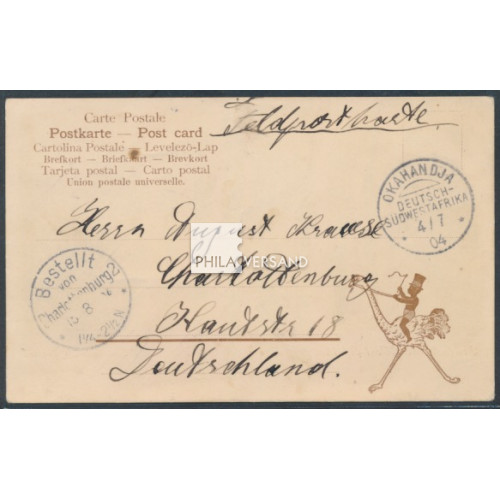 Carte Postale
Postkarte — Post card
Cartolina Postale — Levelezö-Lap
Brefkort — Briefkaart — Brevkort
Tarjeta postal — Carto postal
Union postale universelle.
Feldpostkarte.
OKAHANDJA
DEUTSCH-
SÜDWESTAFRIKA
4/7
04
Herrn August Krause
PHILA VERSAND
Charlottenburg
Bestellt
von
Charlottenburg 2
8
Deutschland.